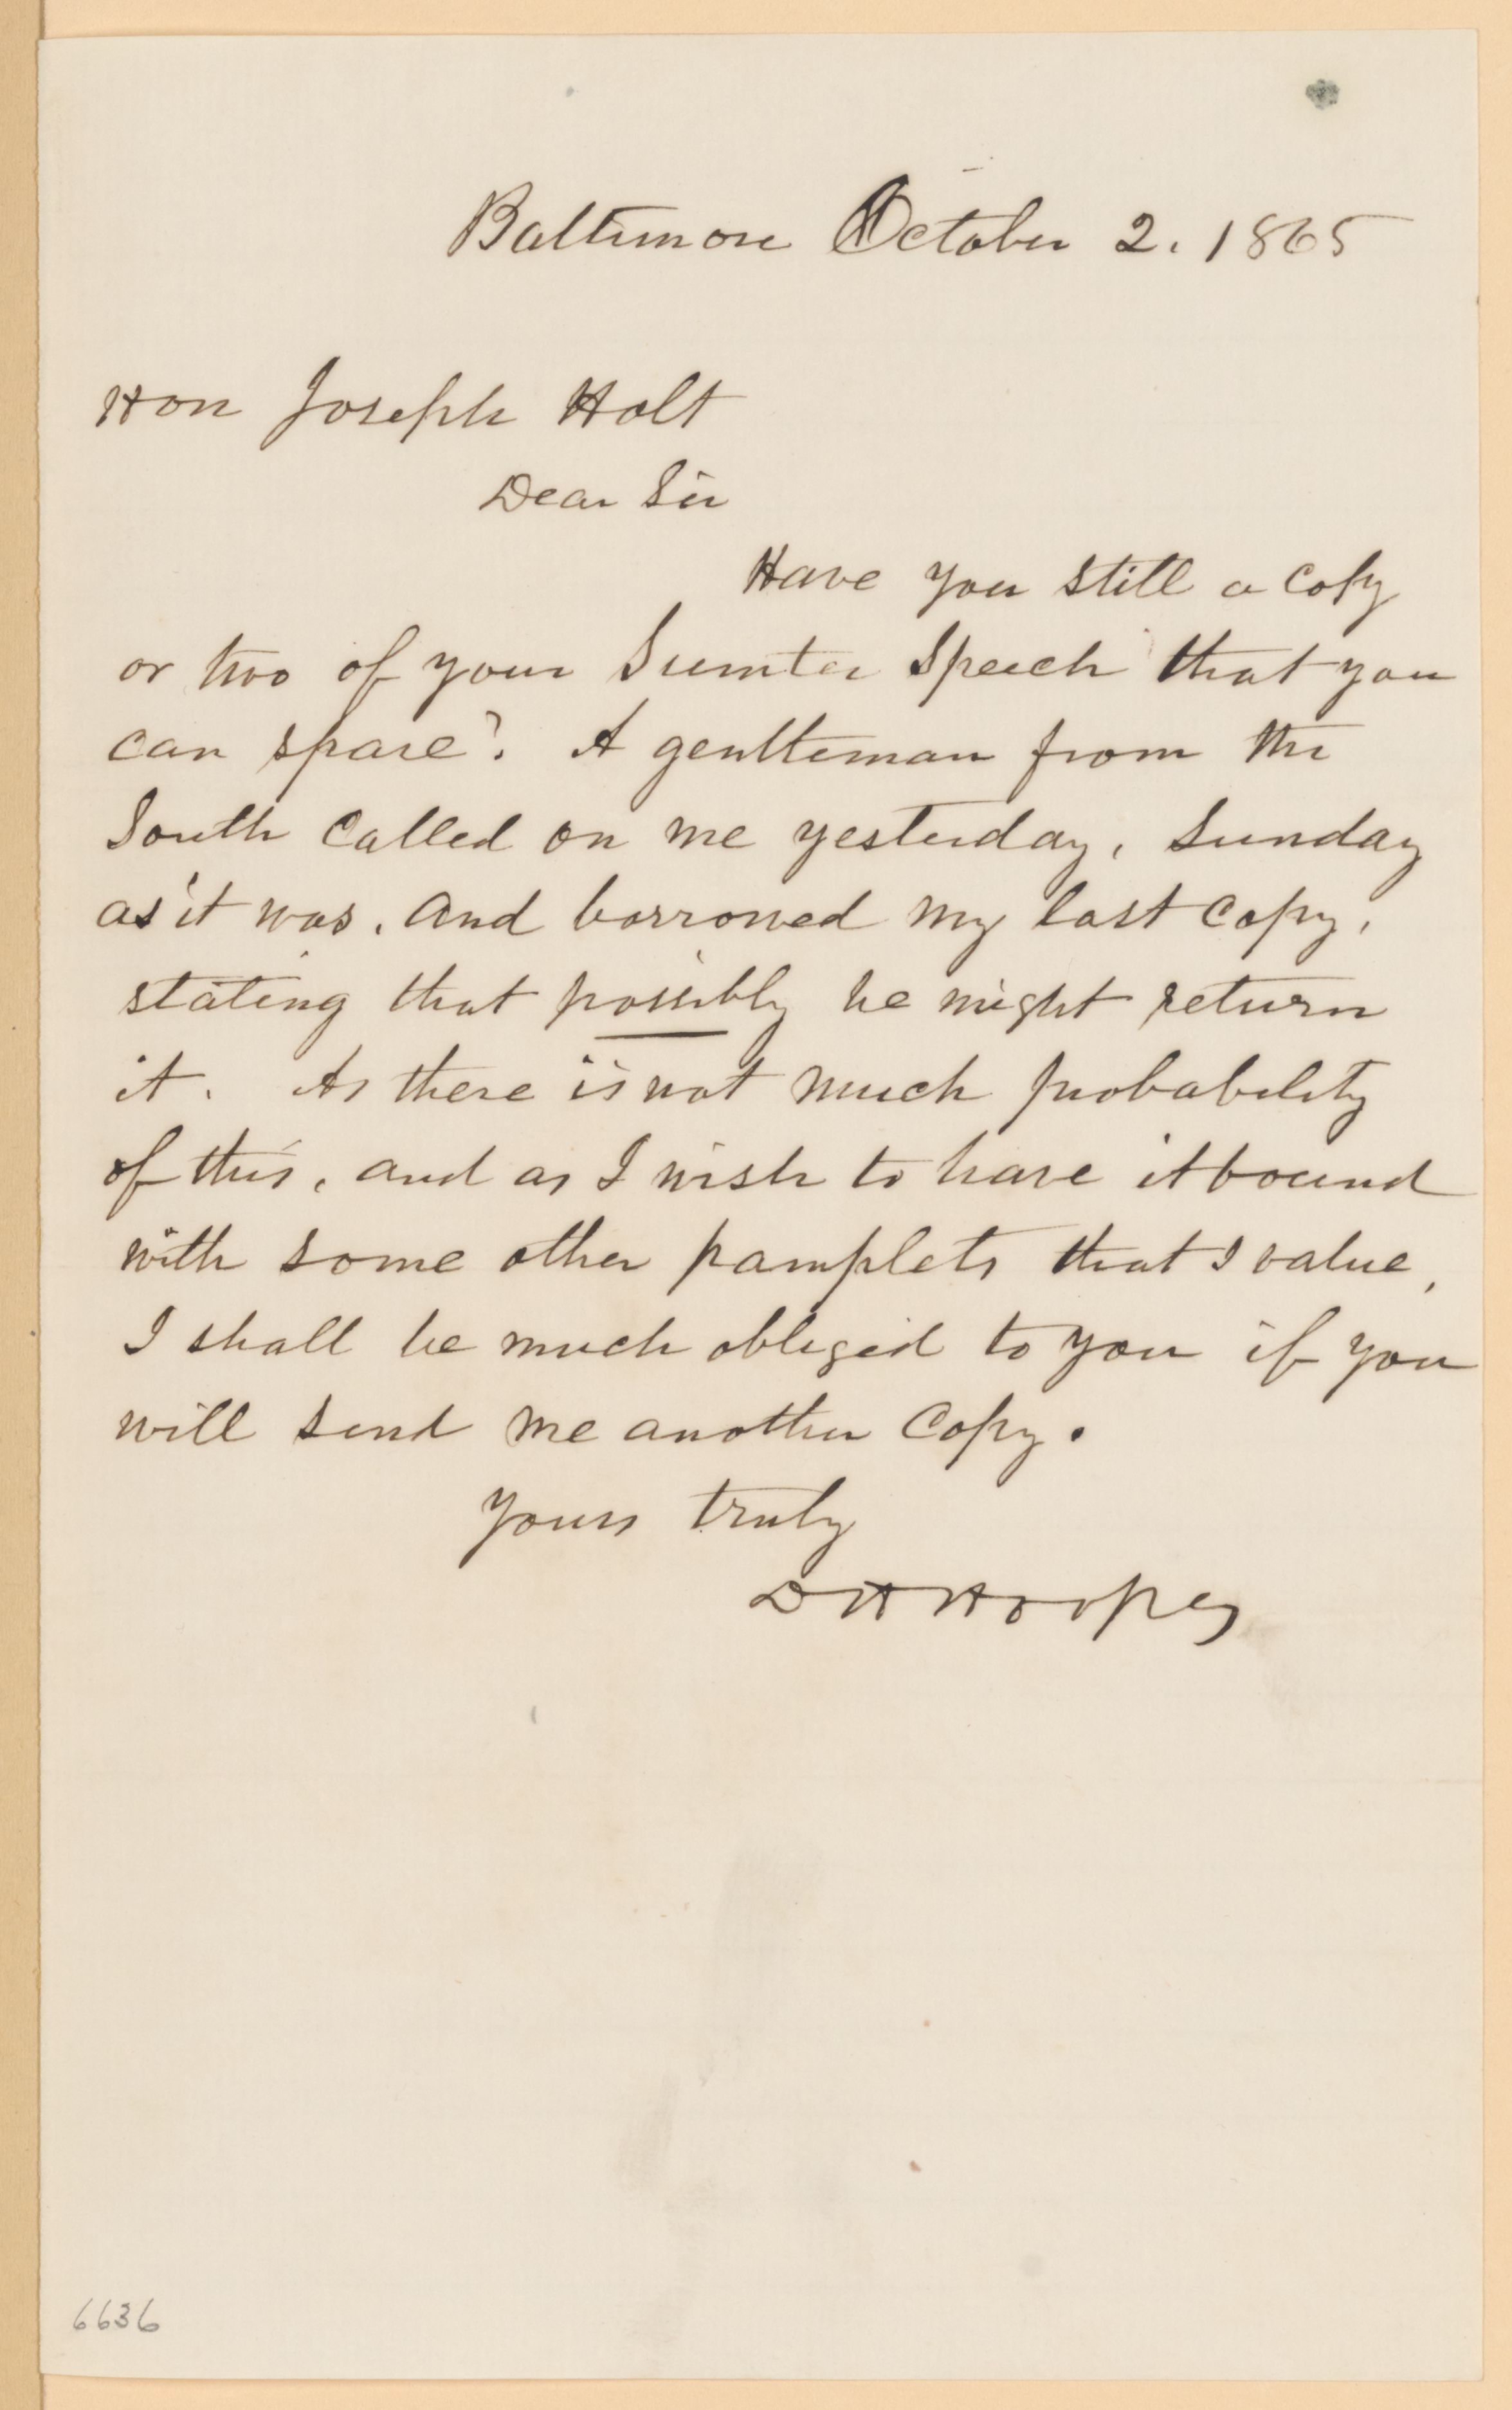 Baltimore October 2. 1865
Hon Joseph Holt
Dear Sir
Have you still a copy
or two of your Sumter Speech that you
can spare? A gentleman from the
South called on me yesterday, Sunday
as it was, and borrowed my last copy,
stating that possibly he might return
it. As there is not much probability
of this, and as I wish to have it bound
with some other pamplets that I value,
I shall be much obliged to you if you
will send me another copy.
Yours truly
D H Hoopes
6636